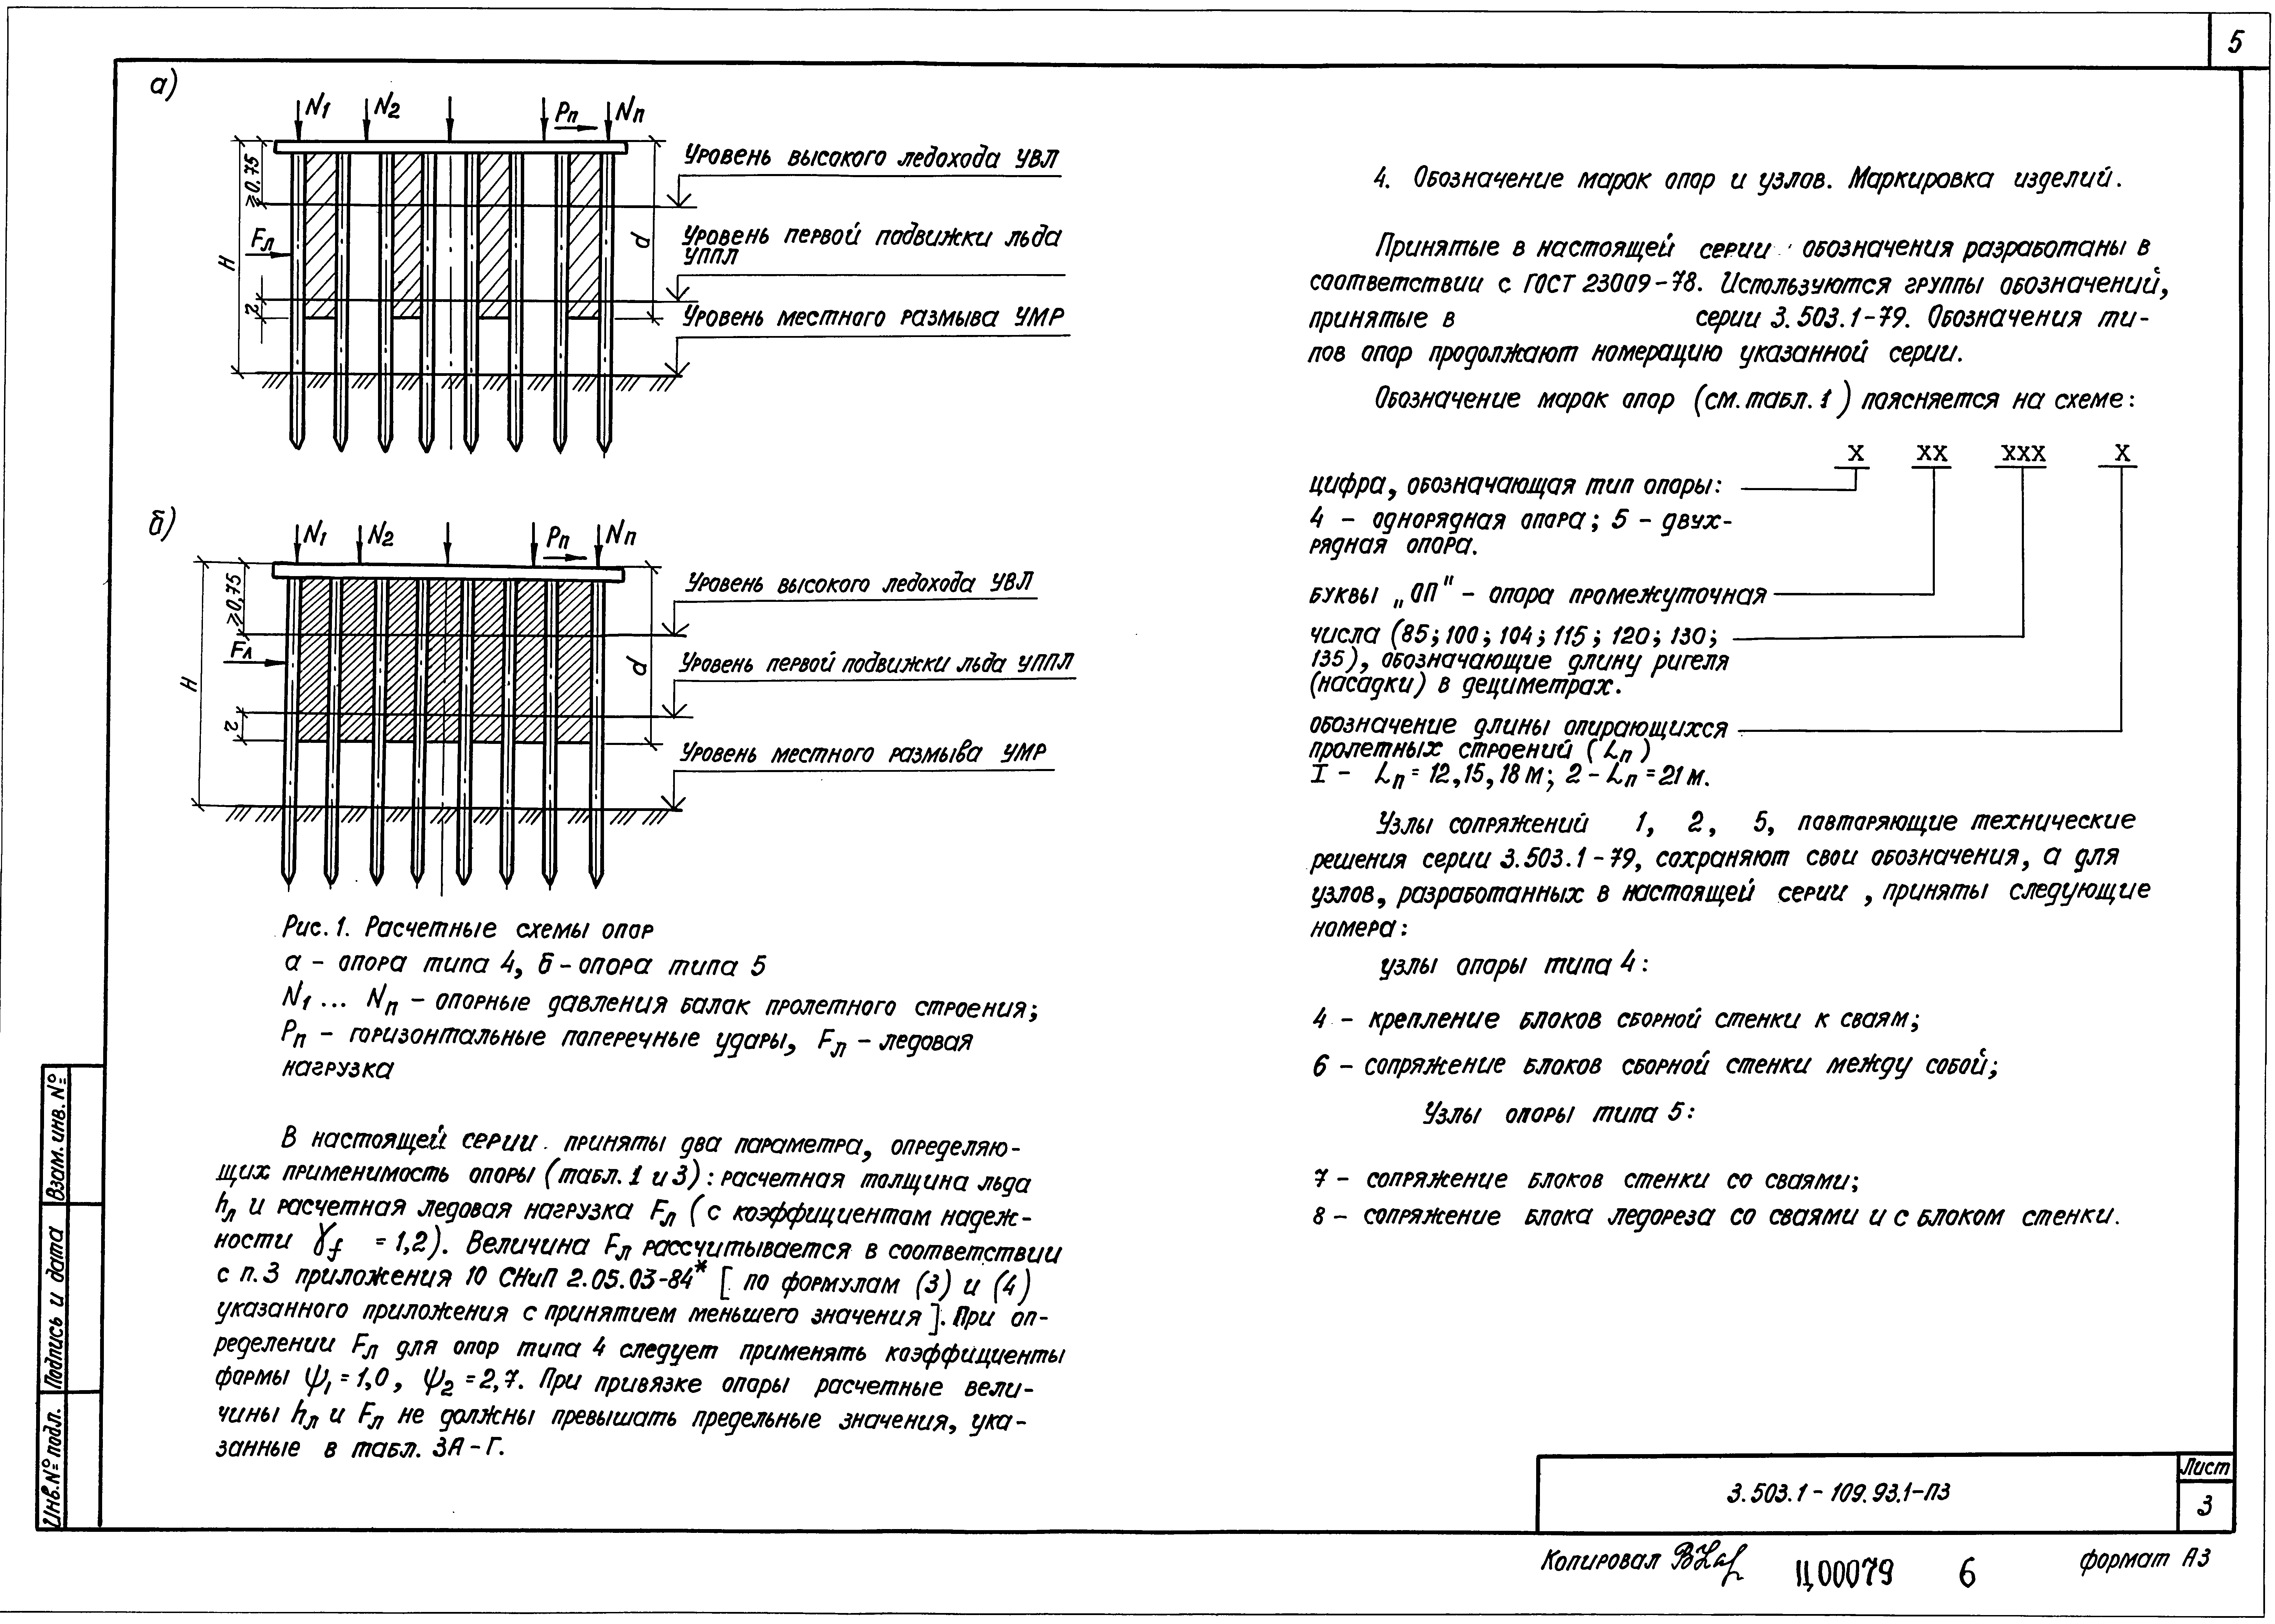 5
а)
N1
N2
Pп
Nп
≥0.75
H
Fл
г
d
Уровень высокого ледохода УВЛ
Уровень первой подвижки льда
УППЛ
Уровень местного размыва УМР
б)
N1
N2
Pп
Nп
≥0,75
H
Fл
г
d
Уровень высокого ледохода УВЛ
Уровень первой подвижки льда УППЛ
Уровень местного размыва УМР
Рис. 1. Расчетные схемы опор
а – опора типа 4, б – опора типа 5
N1 ... Nп – опорные давления балок пролетного строения;
Pп – горизонтальные поперечные удары, Fл – ледовая
нагрузка
В настоящей серии приняты два параметра, определяю-
щих применимость опоры (табл. 1 и 3): расчетная толщина льда
hл и расчетная ледовая нагрузка Fл (с коэффициентом надеж-
ности γf = 1,2). Величина Fл рассчитывается в соответствии
с п. 3 приложения 10 СНиП 2.05.03-84* [ по формулам (3) и (4)
указанного приложения с принятием меньшего значения ]. При оп-
ределении Fл для опор типа 4 следует применять коэффициенты
формы ψ1 = 1,0, ψ2 = 2,7. При привязке опоры расчетные вели-
чины hл и Fл не должны превышать предельные значения, ука-
занные в табл. 3А – Г.
4. Обозначение марок опор и узлов. Маркировка изделий.
Принятые в настоящей серии обозначения разработаны в
соответствии с ГОСТ 23009-78. Используются группы обозначений,
принятые в серии 3.503.1-79. Обозначения ти-
пов опор продолжают номерацию указанной серии.
Обозначение марок опор (см. табл. 1) поясняется на схеме:
X XX XXX X
цифра, обозначающая тип опоры:
4 – однорядная опора; 5 – двух-
рядная опора.
буквы „ОП" – опора промежуточная
числа (85; 100; 104; 115; 120; 130;
135), обозначающие длину ригеля
(насадки) в дециметрах.
обозначение длины опирающихся
пролетных строений (Lп)
I – Lп = 12, 15, 18 м; 2 – Lп = 21 м.
Узлы сопряжений 1, 2, 5, повторяющие технические
решения серии 3.503.1-79, сохраняют свои обозначения, а для
узлов, разработанных в настоящей серии, приняты следующие
номера:
узлы опоры типа 4:
4 – крепление блоков сборной стенки к сваям;
6 – сопряжение блоков сборной стенки между собой;
Узлы опоры типа 5:
7 – сопряжение блоков стенки со сваями;
8 – сопряжение блока ледореза со сваями и с блоком стенки.
Взам. инв. №
Подпись и дата
Инв. № подл.
3.503.1 - 109.93.1-ПЗ
Лист
3
Копировал
Ц00079
6
формат А3